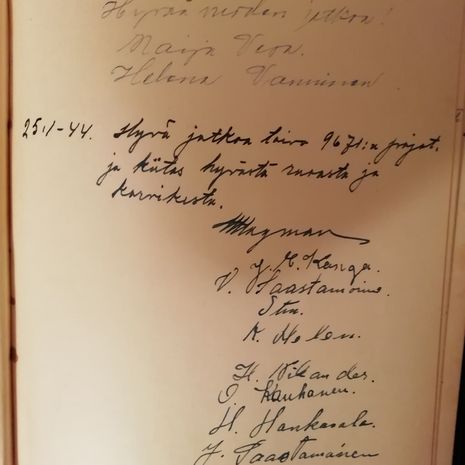 Hyvää vuoden jatkoa!
Maija Vera.
Helena Vanninen.
25/1-44. Hyvä jatkoa toivo 9671:n pojat.
ja kiitos hyvästä ruuasta ja
korvikesta.
Hagman
J. E. Kanga.
V. Saastamoine.
Stm.
A. Helen.
H. Vikander.
O. Kauhanen.
H. Hankasalo
J. Saastamoinen